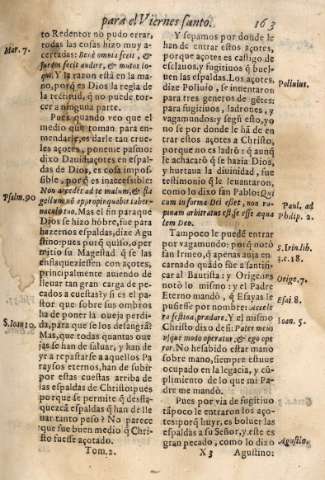 para el Viernes santo. 163
to Redentor no pudo errar,
todas las cosas hizo muy a-
certadas: Benè omnia fecit, &
surdos fecit audire, & mutos lo-
qui. Y la razon está en la ma-
no, porq̃ es Dios la regla de
la rectitud, q̃ no puede tor-
cer a ninguna parte.
Pues quando veo que el
medio que toman para en-
mendarle, es darle tan crue-
les açotes, poneme pasmo:
dixo Dauid, açotes en espal-
das de Dios, es cosa impos-
sible, porq̃ es inaccessible:
Non accedet ad te malum, & fla
gellum nõ appropinquabit taber-
naculo tuo. Mas el fin para que
Dios se hizo hõbre, fue para
hazernos espaldas, dize Agu
stino: pues por q̃ quiso, o per
mitio su Magestad q̃ se las
enflaqueziessen con açotes,
principalmente auiendo de
lleuar tan gran carga de pe-
cados a cuestas? y si es el pa-
stor que sobre sus ombros
ha de poner la oueja perdi-
da, para que se los desangrã?
Mas, que todas quantas oue
jas se han de saluar, y han de
yr a repastarse a aquellos Pa
raysos eternos, han de subir
por estas cuestas arriba de
las espaldas de Christo: pues
porque se permite q̃ desfla-
quezcã espaldas q̃ han de lle
uar tanto peso? No parece
que fue buen medio q̃ Chri
sto fuesse açotado.
Tom. 2.
Mar. 7.
Psalm. 90
S. Ioan 10.
Y sepamos por donde le
han de entrar estos açotes,
porque açotes es castigo de
esclauos, y fugitiuos q̃ buel-
uen las espaldas. Los açotes,
dize Polluio, se inuentaron
para tres generos de gẽtes:
para fugitiuos, ladrones, y
vagamundos: y segũ esto, yo
no se por donde le hã de en
trar estos açotes a Christo,
porque no es ladrõ: q̃ aunq̃
le achacarõ q̃ se hazia Dios,
y hurtaua la diuinidad, fue
testimonio q̃ le leuantaron,
como lo dixo san Pablo: Qui
cum in forma Dei esset, non ra-
pinam arbitratus est, se esse æqua
lem Deo.
Tampoco le puedẽ entrar
por vagamundo: porq̃ notò
san Irineo, q̃ apenas auia en
carnado quãdo fue a santifi-
car al Bautista: y Origenes
notò lo mismo: y el Padre
Eterno mandò, q̃ Esayas le
pusiesse por nombre: Accele
ra festina, prædare. Y el mismo
Christo dixo de si: Pater meus
vsque modo operatur, & ego ope
ror. No he sabido estar mano
sobre mano, siempre estuue
ocupado en la legacia, y cũ-
plimiento de lo que mi Pa-
dre me mandò.
Pues por via de fugitiuo
tãpoco le entraron los aço-
tes: porq̃ huyr, es boluer las
espaldas a su Señor, y este es
gran pecado, como lo dixo
X 3 Agustino:
Polluius.
Paul. ad
Philip. 2.
S. Irin. lib.
3. c. 18.
Orige. 7.
Esai 8.
Ioan. 5.
Agustin.